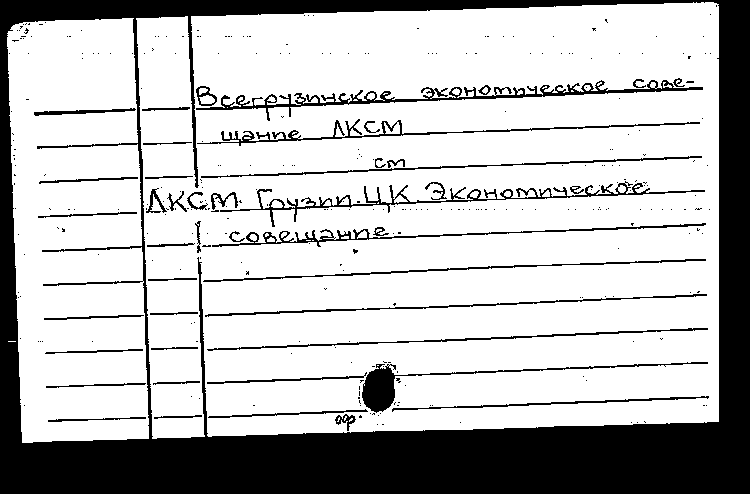 Всегрузинское экономическое сове-
щание ЛКСМ
см
ЛКСМ Грузии. ЦК. Экономическое
совещание.